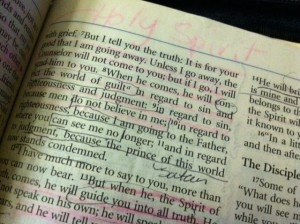 Holy Spirit
with grief. 7But I tell you the truth: It is for your
good that I am going away. Unless I go away, the
Counselor will not come to you; but if I go, I will
send him to you. 8When he comes, he will con-
vict the world of guilt in regard to sin and
righteousness and judgment: 9in regard to sin,
because men do not believe in me; 10in regard to
righteousness, because I am going to the Father,
where you can see me no longer; 11and in regard
to judgment, because the prince of this world
now stands condemned.
12"I have much more to say to you, more than
you can now bear. 13But when he, the Spirit of
truth, comes, he will guide you into all truth. He
will not speak on his own; he will speak
hears, and he will tell
14He will
is mine and
belongs to the
the Spirit wi
it known to
16"In a litt
and then aft
The Disciple
17Some of
"What does h
you will see